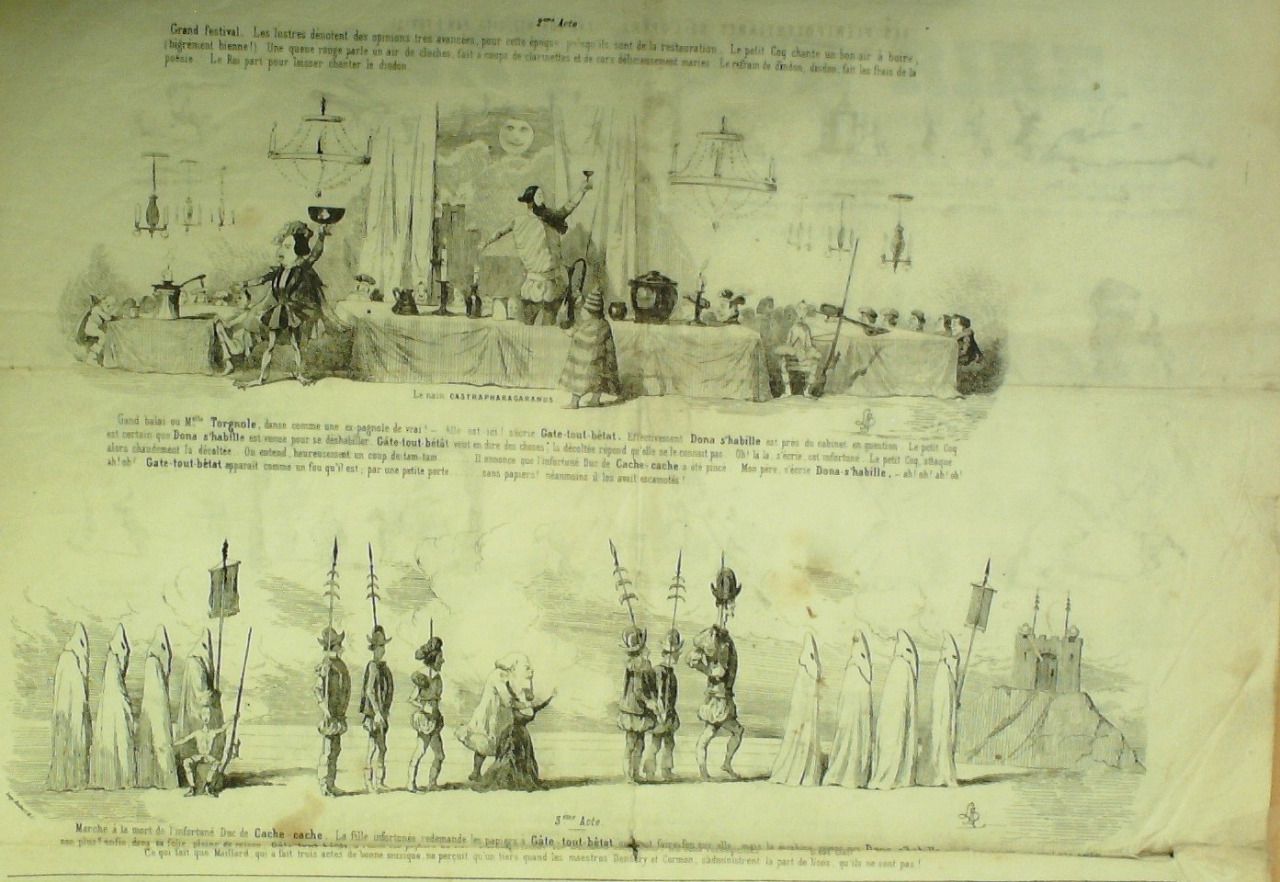 2eme Acte
Grand festival. Les lustres dénotent des opinions très avancées, pour cette époque puisqu'ils sont de la restauration. Le petit Coq chante un bon air à boire,
(bigrement bienne!) Une queue rouge parle un air de cloches, fait a coups de clarinettes et de cors délicieusement mariés. Le refrain de dindon, dindon, fait les frais de la
poésie. Le Roi part pour laisser chanter le dindon
Le nain CASTRAPHARAGARANUS
Gand balai ou Melle Torgnole, danse comme une ex-pagnole de vrai! - Elle est ici! s'écrie Gate-tout-bêtat. Effectivement Dona s'habille est près du cabinet en question. Le petit Coq
est certain que Dona s'habille est venue pour se déshabiller. Gâte-tout-bêtât veut en dire des choses; la décoltée répond qu'elle ne le connait pas. Oh! la la, s'écrie cet infortuné. Le petit Coq, attaque
alors chaudement la décoltée. On entend, heureusement un coup de tam-tam Il annonce que l'infortuné Duc de Cache-cache a été pincé Mon père, s'écrie Dona-s'habille, - ah! oh! ah! oh!
ah! oh! Gate-tout-bêtat apparait comme un fou qu'il est; par une petite porte sans papiers! néanmoins il les avait escamotés!
3eme Acte.
Marche à la mort de l'infortuné Duc de Cache-cache. La fille infortunée redemande les papiers à Gâte-tout-bêtat
non plus! enfin dans sa folie, pleine de raison
Ce qui fait que Maillard, qui a fait trois actes de bonne musique, ne perçoit qu'un tiers quand les maestros Dennery et Cormon, s'administrent la part de Noés, qu'ils ne sont pas!